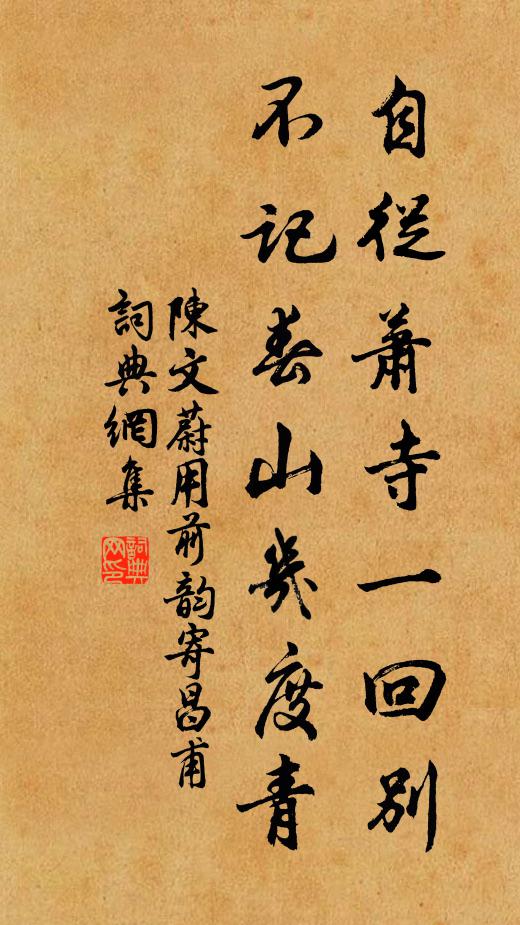 自從蕭寺一回別
不記春山幾度青
陳文蔚用前韵寄昌甫
詞典網集
詞典网印